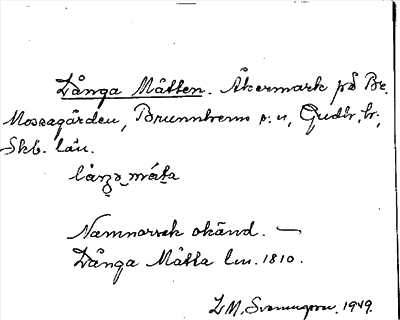 Långa Måtten. Åkermark på Br.
Mossagården, Brunnhems sn, Gudh. hr.,
Skb. län.
Namnorsak okänd. —
Långa Måtta lm. 1810.
1949.